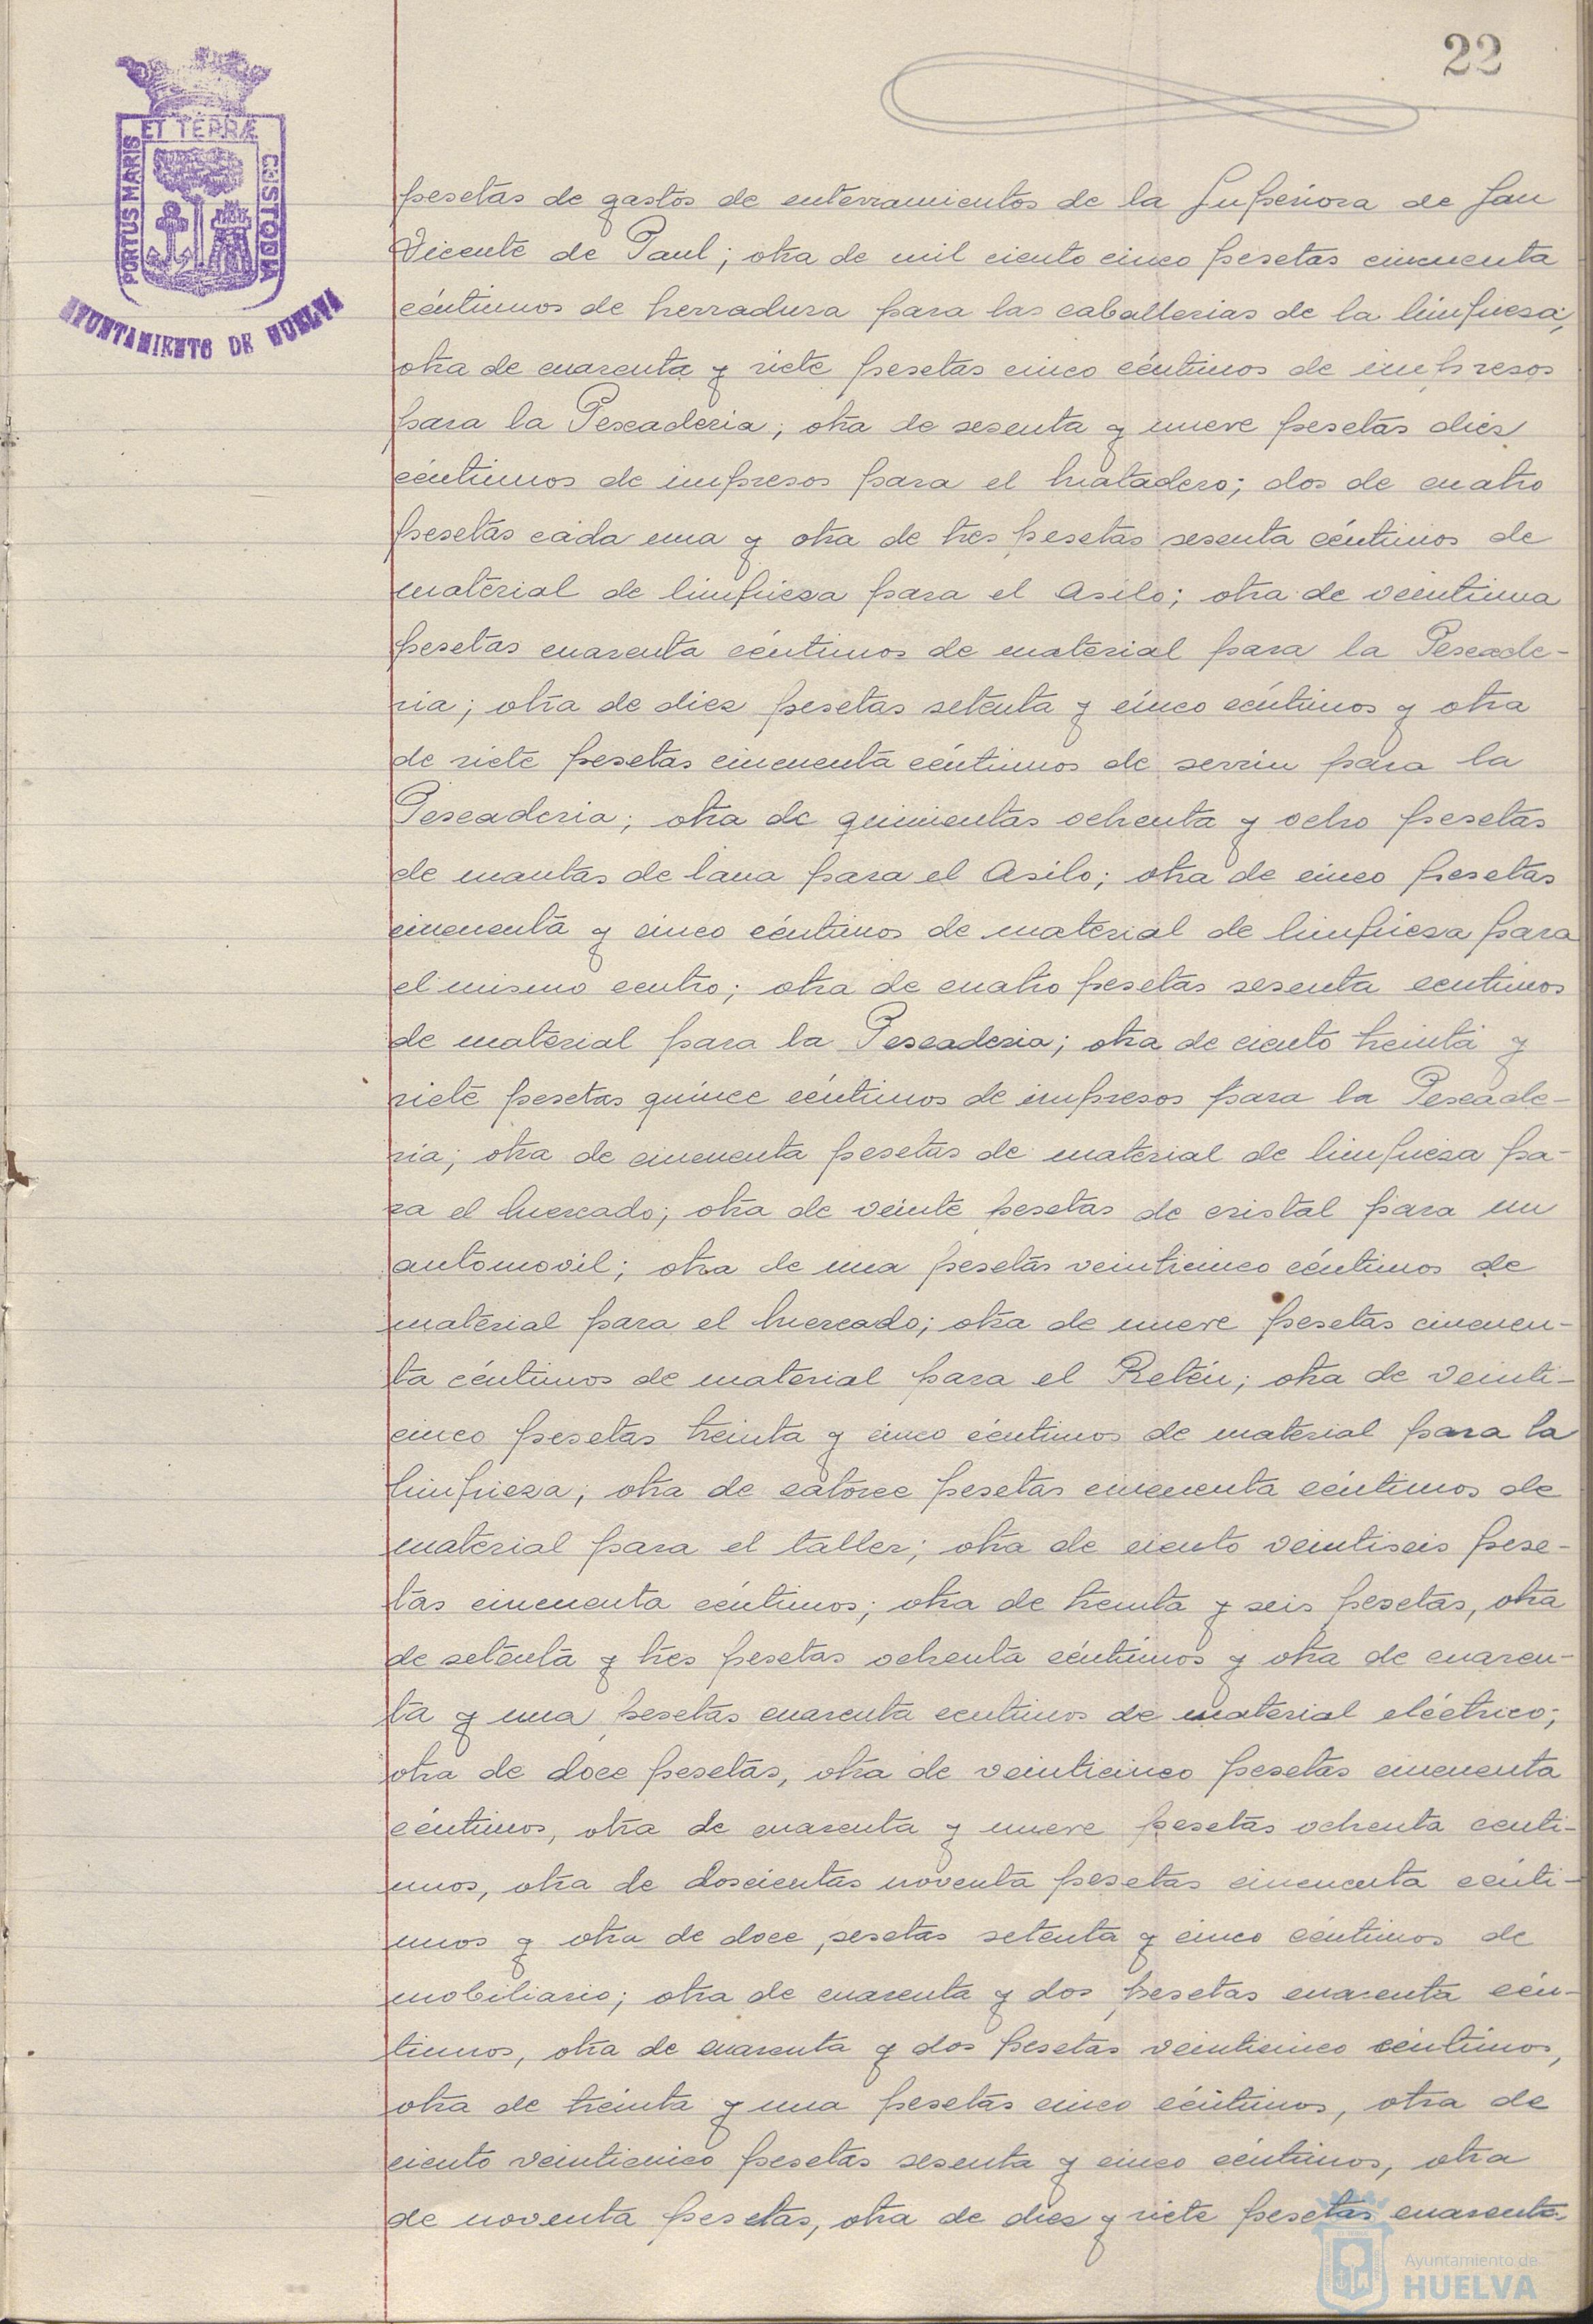 22
ET TERRÆ
PORTUS MARIS
CUSTODIA
AYUNTAMIENTO DE HUELVA
pesetas de gastos de enterramientos de la Superiora de San
Vicente de Paul; otra de mil ciento cinco pesetas cincuenta
céntimos de herradura para las caballerias de la limpieza;
otra de cuarenta y siete pesetas cinco céntimos de impresos
para la Pescaderia; otra de sesenta y nueve pesetas diez
céntimos de impresos para el Matadero; dos de cuatro
pesetas cada una y otra de tres pesetas sesenta céntimos de
material de limpieza para el Asilo; otra de veintiuna
pesetas cuarenta céntimos de material para la Pescade-
ria; otra de diez pesetas setenta y cinco céntimos y otra
de siete pesetas cincuenta céntimos de serrin para la
Pescaderia; otra de quinientas ochenta y ocho pesetas
de mantas de lana para el Asilo; otra de cinco pesetas
cincuenta y cinco céntimos de material de limpieza para
el mismo centro; otra de cuatro pesetas sesenta centimos
de material para la Pescaderia; otra de ciento treinta y
siete pesetas quince céntimos de impresos para la Pescade-
ria; otra de cincuenta pesetas de material de limpieza pa-
ra el Mercado; otra de veinte pesetas de cristal para un
automovil; otra de una pesetas veinticinco céntimos de
material para el Mercado; otra de nueve pesetas cincuen-
ta céntimos de material para el Retén; otra de veinti-
cinco pesetas treinta y cinco céntimos de material para la
limpieza; otra de catorce pesetas cincuenta céntimos de
material para el taller; otra de ciento veintiseis pese-
tas cincuenta céntimos; otra de treinta y seis pesetas, otra
de setenta y tres pesetas ochenta céntimos y otra de cuaren-
ta y una pesetas cuarenta centimos de material eléctrico;
otra de doce pesetas, otra de veinticinco pesetas cincuenta
céntimos, otra de cuarenta y nueve pesetas ochenta centi-
mos, otra de doscientas noventa pesetas cincuenta cénti-
mos y otra de doce pesetas setenta y cinco céntimos de
mobiliario; otra de cuarenta y dos pesetas cuarenta cén-
timos, otra de cuarenta y dos pesetas veinticinco céntimos,
otra de treinta y una pesetas cinco céntimos, otra de
ciento veinticinco pesetas sesenta y cinco céntimos, otra
de noventa pesetas, otra de diez y siete pesetas cuarenta
Ayuntamiento de
HUELVA